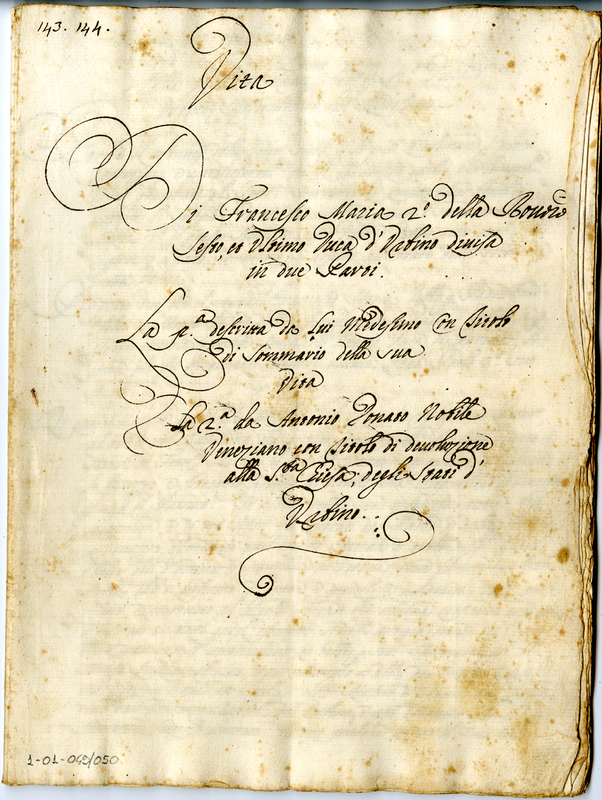 143. 144.
Vita
Di Francesco Maria 2.º della Rovere
Sesto, et Ultimo Duca d'Urbino divisa
in due Parti.
La p.ª descritta da Lui Medesimo con titolo
di Sommario della sua
Vita
La 2.ª da Antonio Donato Nobile
Veneziano con titolo di devoluzione
alla S.ta Chiesa, degli Stati d'
Urbino.
1-01-042/050